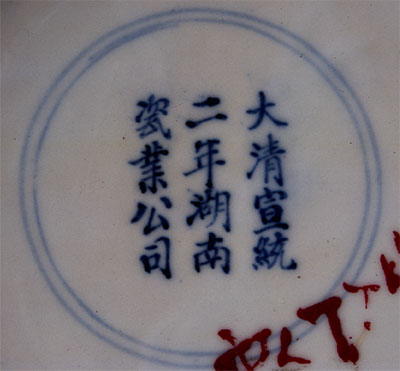 大清宣統
二年湖南
瓷業公司